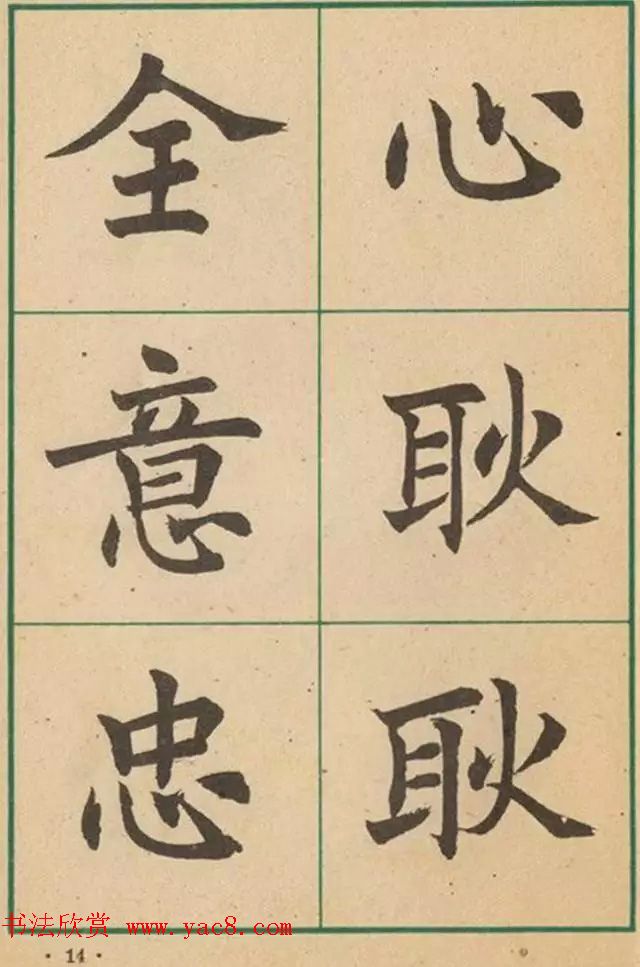 全意忠
心耿耿
书法欣赏 www.yac8.com
· 14 ·